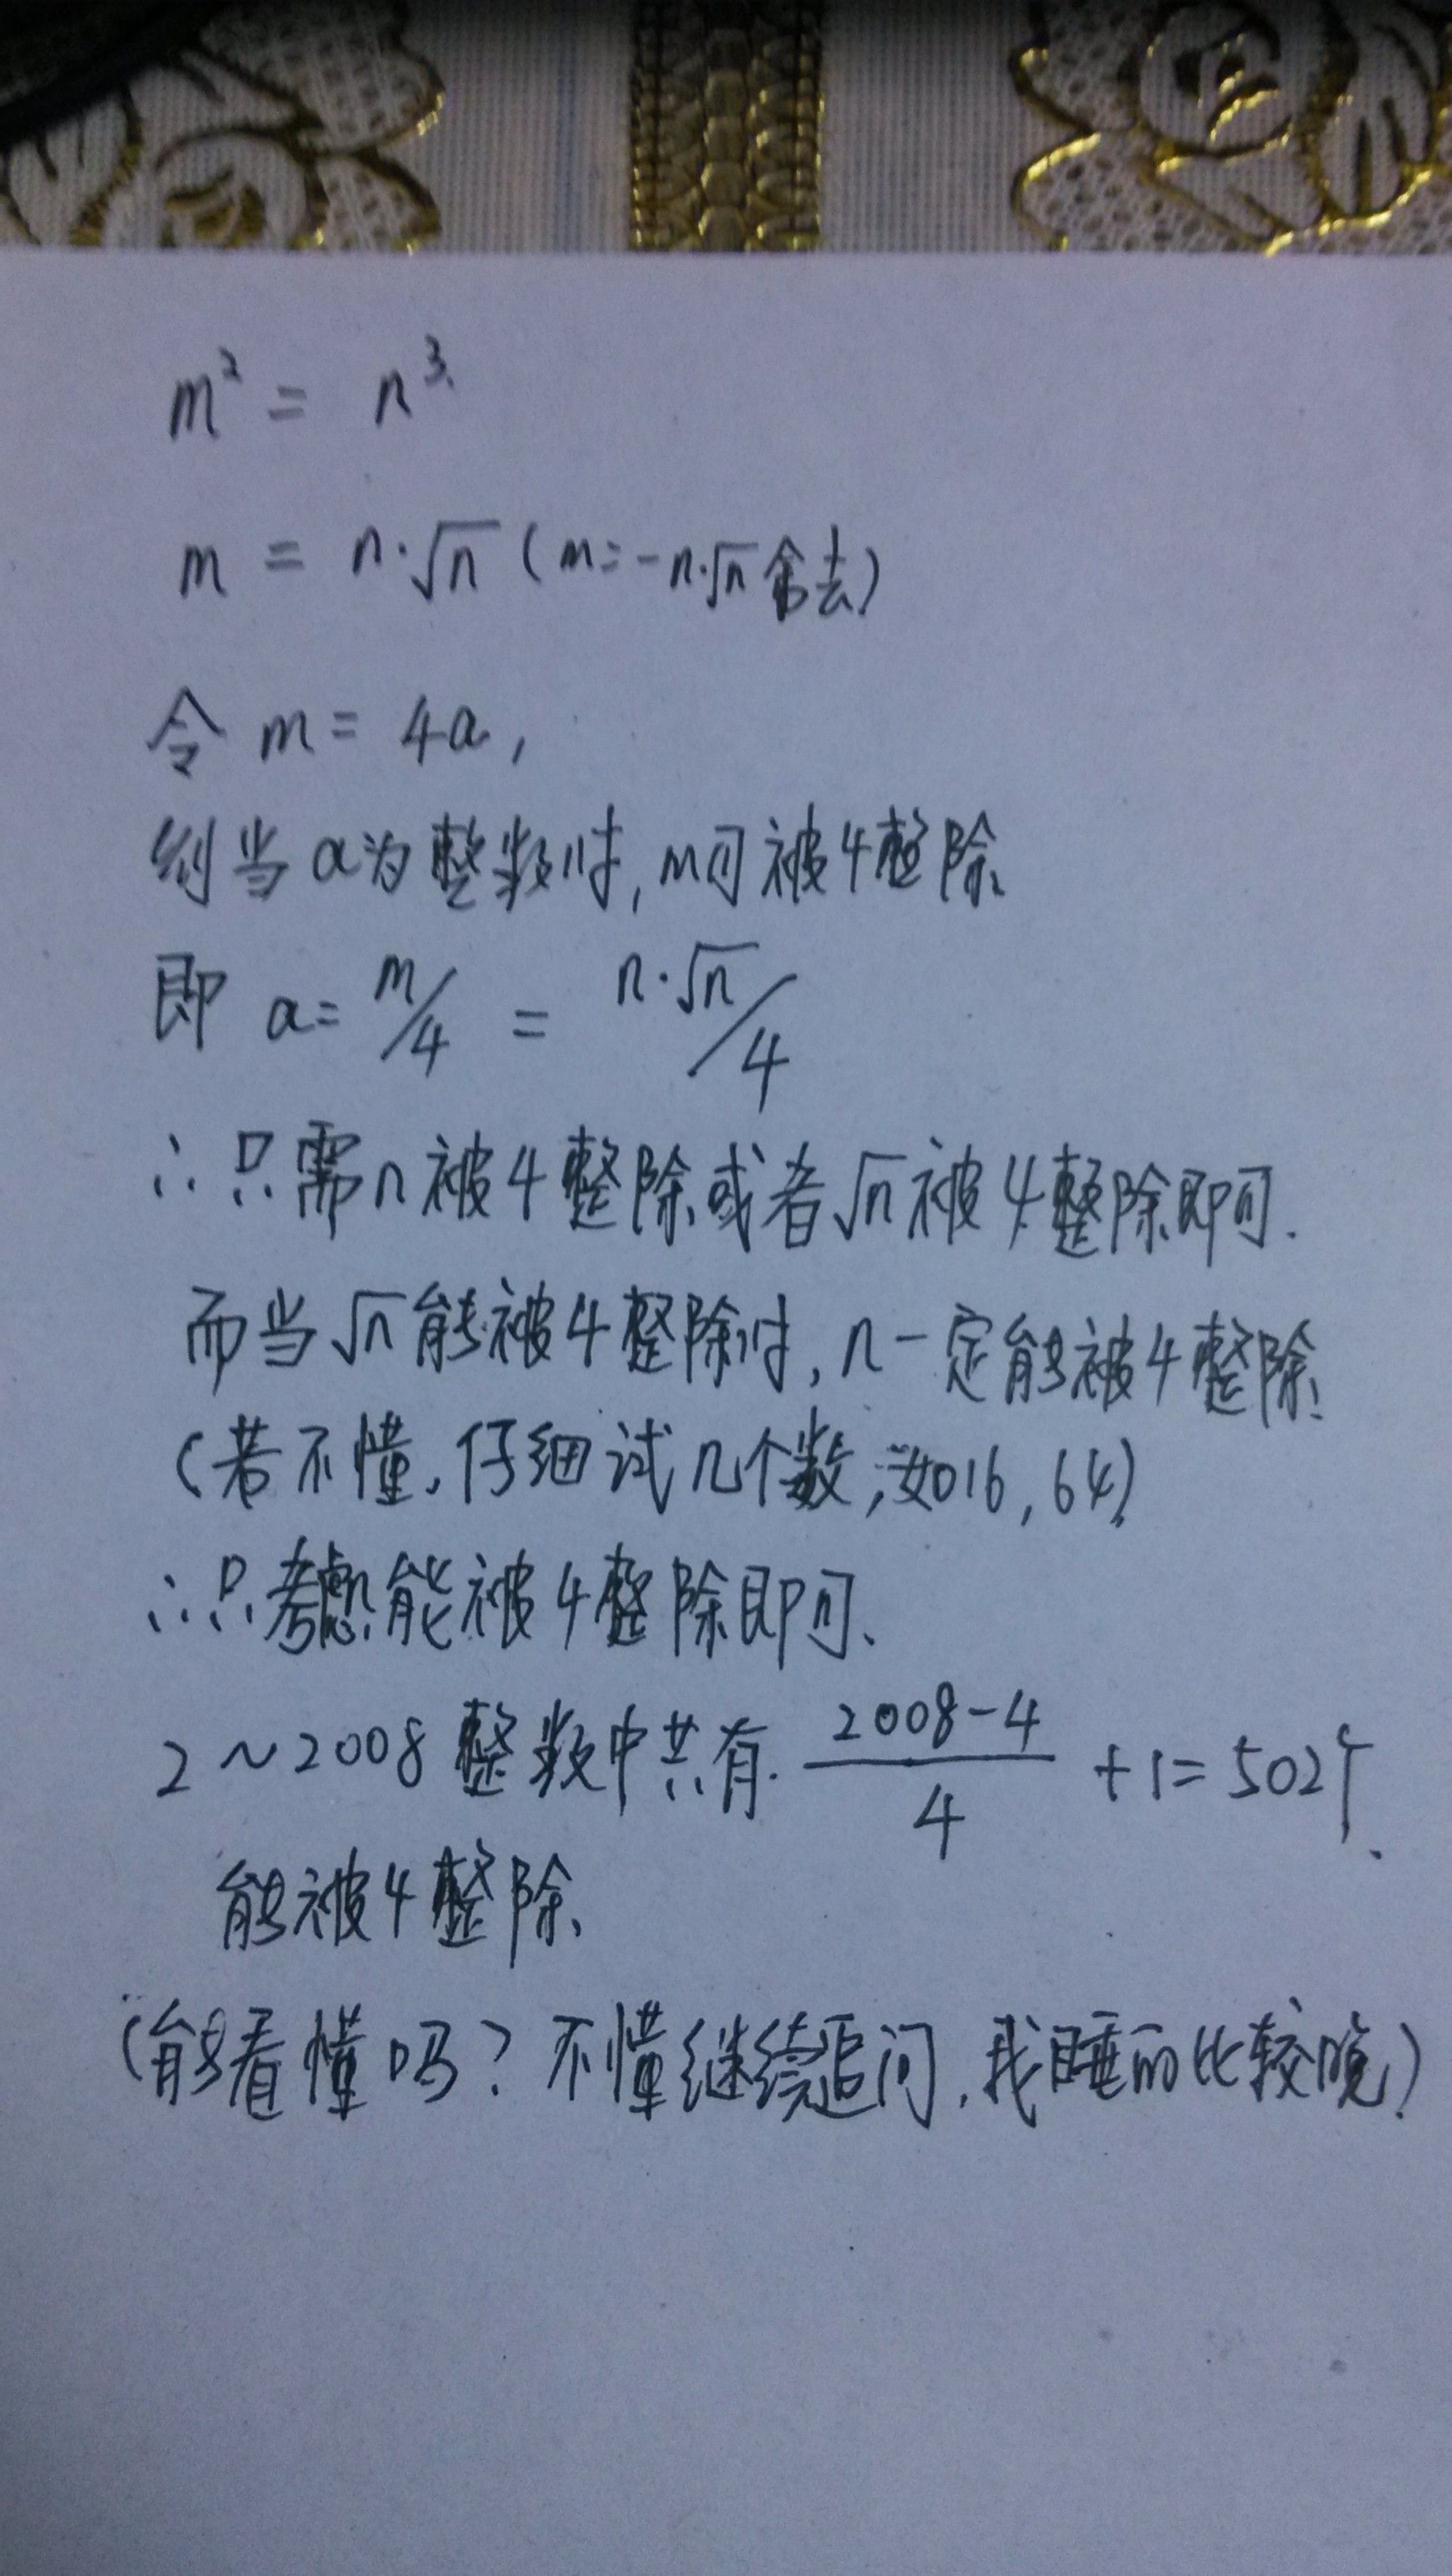 m² = n³
m = n·√n (m=-n·√n 舍去)
令 m = 4a,
则当a为整数时,m可被4整除.
即 a= m/4 = n·√n/4
∴只需n被4整除或者√n被4整除即可.
而当√n能被4整除时,n一定能被4整除.
(若不懂,仔细试几个数,如16,64)
∴只考虑能被4整除即可.
2~2008整数中共有 (2008-4)/4 +1=502个
能被4整除.
(能看懂吗?不懂继续追问,我睡的比较晚)